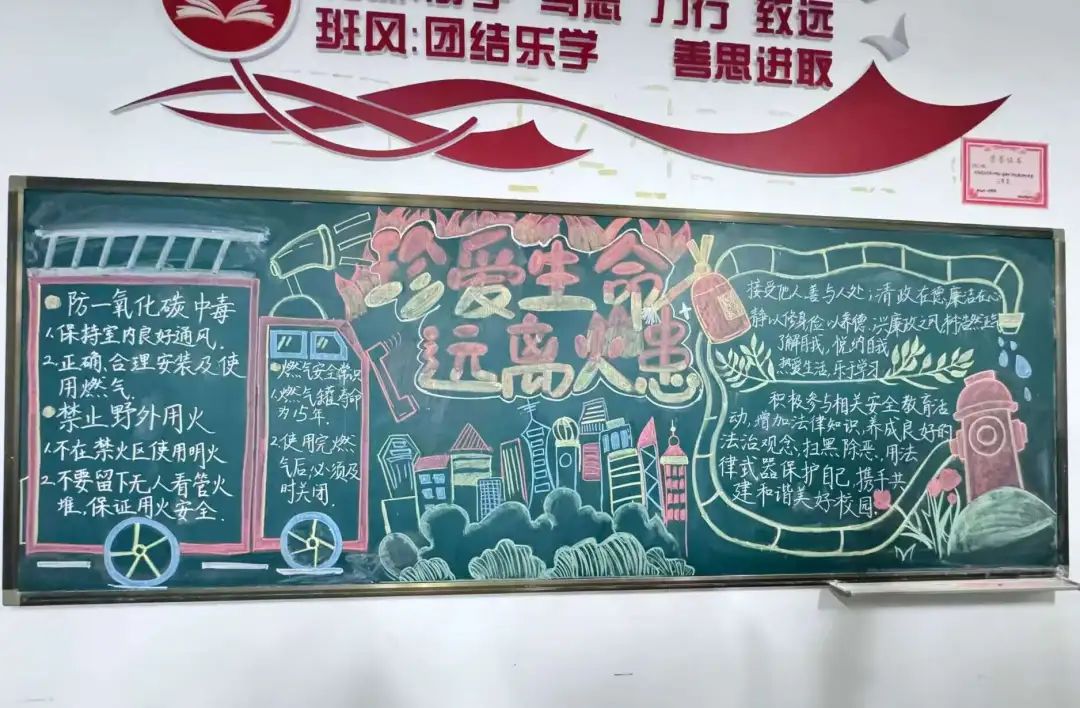 笃思 力行 致远
班风:团结乐学 善思进取
荣誉证书
珍爱生命
远离火患
防一氧化碳中毒
1.保持室内良好通风.
2.正确、合理安装及使
用燃气.
禁止野外用火
1.不在禁火区使用明火
2.不要留下无人看管火
堆,保证用火安全.
燃气安全常识
1.燃气罐寿命
为15年.
2.使用完燃
气后,必须及
时关闭.
接受他人善与人处;清政在德,廉洁在心
静以修身俭以养德.兴廉政之风
了解自我,悦纳自我
热爱生活,乐于学习
积极参与相关安全教育活
动,增加法律知识,养成良好的
法治观念、扫黑除恶、用法
律武器保护自己,携手共
建和谐美好校园.